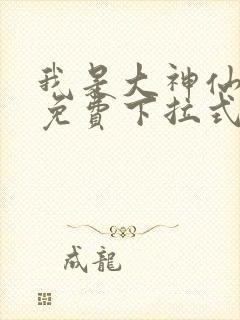 我是大神仙
免費下拉式
成龍